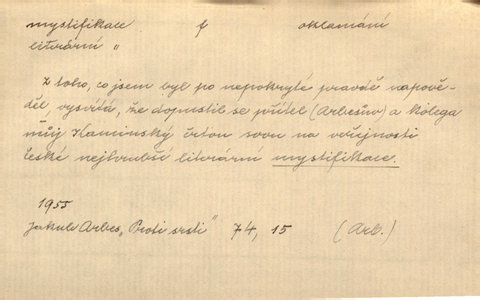 mystifikace f oklamání
literární "
Z toho, co jsem byl po nepokryté pravdě napově-
děl, vysvítá, že dopustil se přítel (Arbesův) a kolega
můj Kaminský črtou svou na veřejnosti
české nejhrubší literární mystifikace.
1955
Jakub Arbes, „Proti srsti" 74, 15 (Arb.)